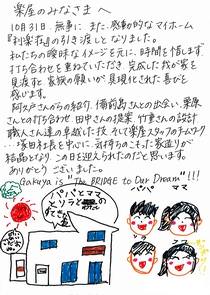 楽屋のみなさまへ
10月31日、無事に、また、感動的なマイホーム
の引き渡しとなりました。
私たちの曖昧なイメージを元に、時間を惜しまず
打ち合わせを重ねていただき、完成した我が家を
見渡すと、家族の願いが具現化された喜びを
感じます。
さんからの紹介、備前島さんとの出会い、栗原
さんとの打ち合わせ、田中さんの提案、竹重さんの設計
職人さん達の卓越した技、そして楽屋スタッフのチームワーク
…塚田社長を中心に、気持ちのこもった家造りが
結晶となり、この日を迎えられたのだと思います。
ありがとうございました。
Gakuya is "The BRIDGE to Our Dream"!!!
パパとママ
パパ
ママ